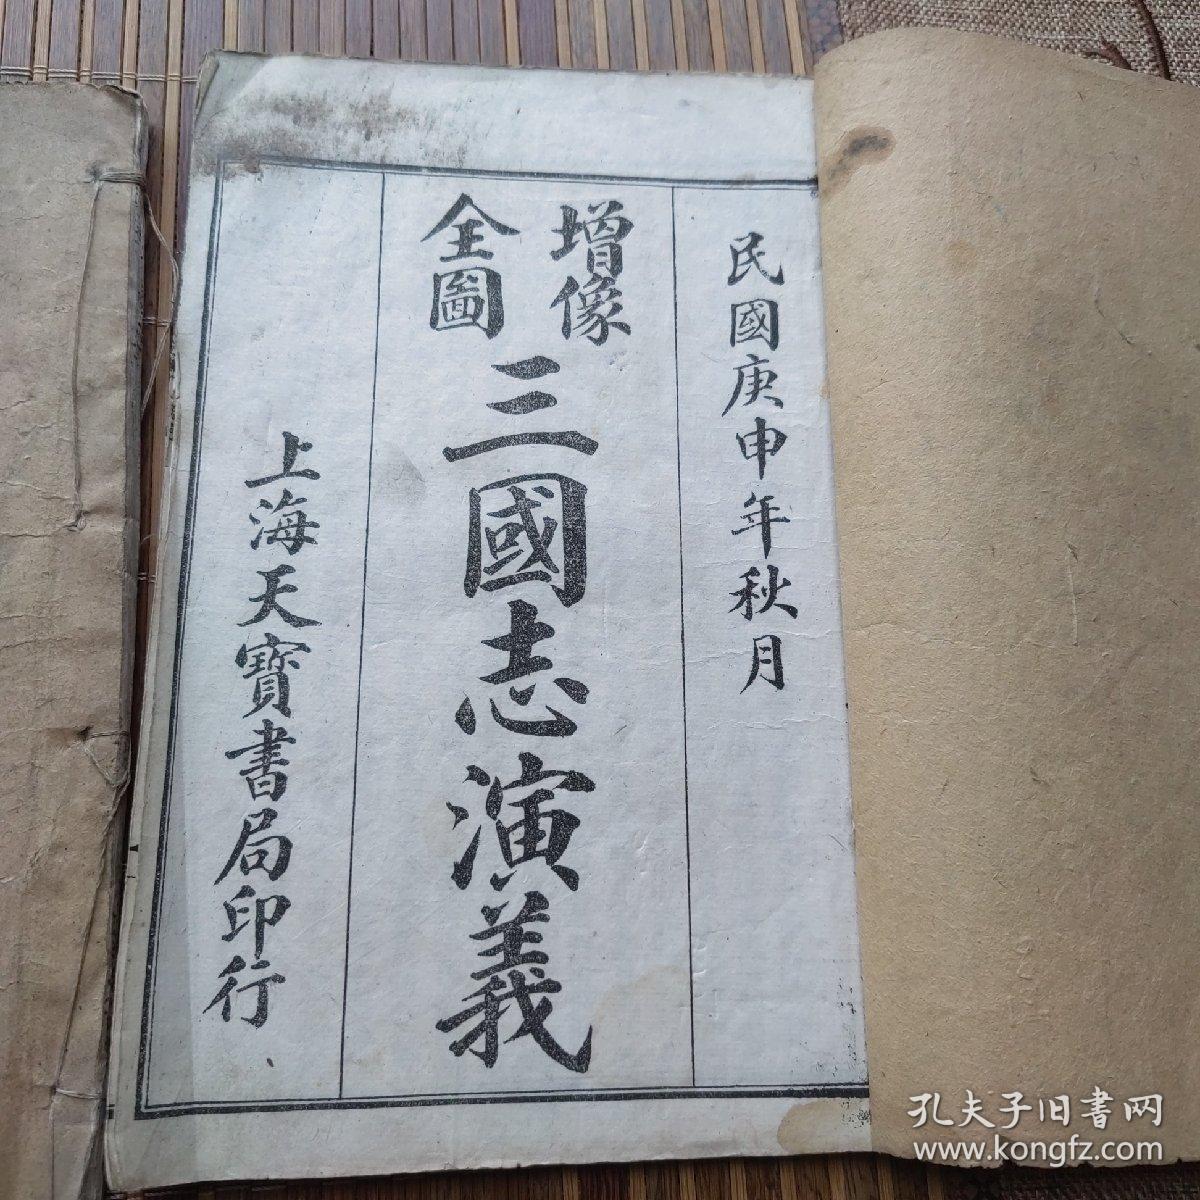 民國庚申年秋月
增像
全圖
三國志演義
上海天寶書局印行
孔夫子旧書网
www.kongfz.com